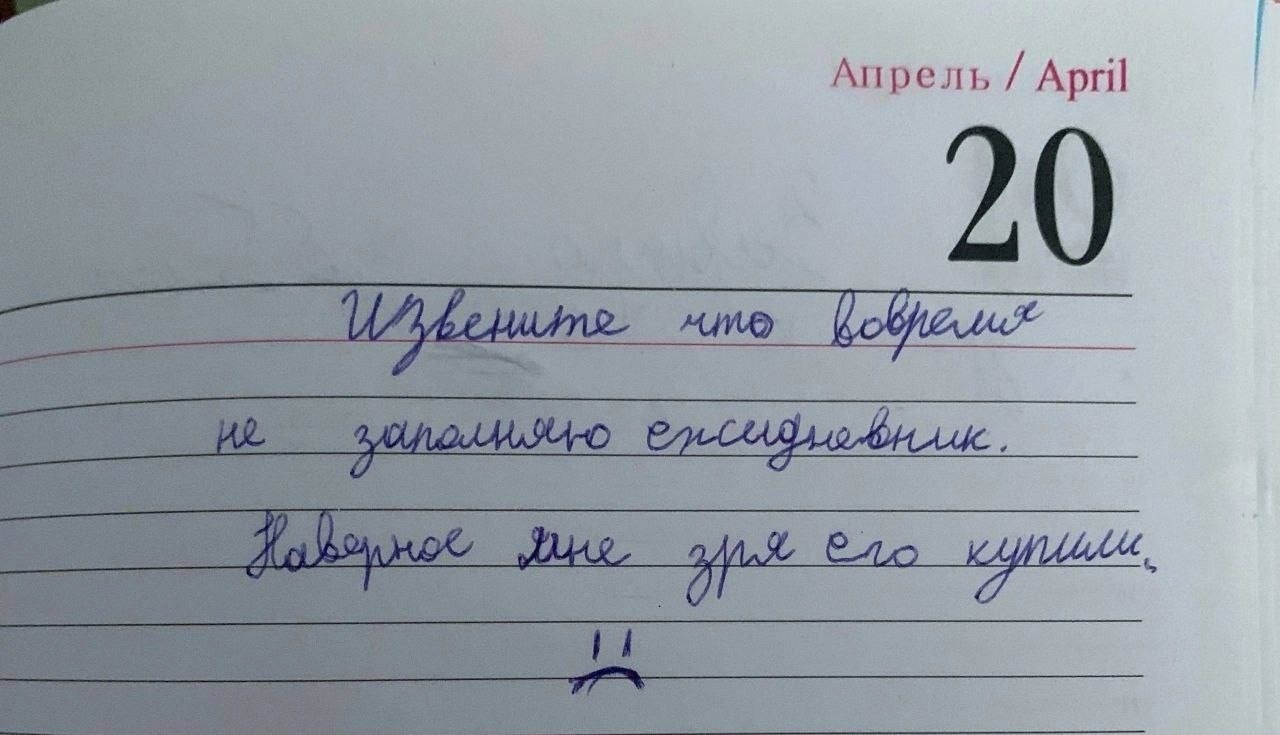 Апрель / April
20
Извените что вовремя
не заполняю ежидневник.
Наверное мне зря его купили.